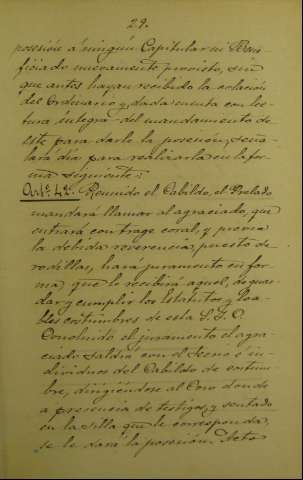 29.
posesión á ningún Capitular ni Bene-
ficiado nuevamente provisto, sin
que antes hayan recibido la colación
del Ordinario y dada cuenta con lec-
tura integra del mandamiento de
este para darle la posesión, seña-
lará dia para realizarla en la for-
ma siguiente:
Artº 42º Reunido el Cabildo, el Prelado
mandará llamar al agraciado, que
entrará con trage coral, y previa
la debida reverencia, puesto de
rodillas, hará juramento en for-
ma que le recibirá aquel, de guar-
dar y cumplir los Estatutos y loa-
bles costumbres de esta S. I. C.
Concluido el juramento el agra-
ciado saldrá con el Secreº é in-
dividuos del Cabildo de costum-
bre, dirigiéndose al Coro donde
a presencia de testigos, y sentado
en la silla que le corresponda,
se le dará la posesión. Acto